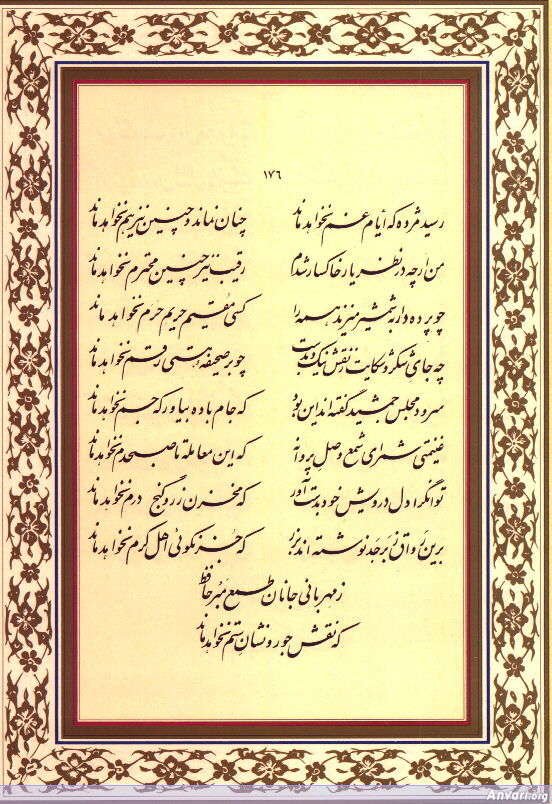 ١٧٦
رسید مژده که ایام غم نخواهد ماند چنان نماند و چنین نیز هم نخواهد ماند
من ار چه در نظر یار خاکسار شدم رقیب نیز چنین محترم نخواهد ماند
چو پرده دار به شمشیر میزند همه را کسی مقیم حریم حرم نخواهد ماند
چه جای شکر و شکایت ز نقش نیک و بدست چو بر صحیفه هستی رقم نخواهد ماند
سرود مجلس جمشید گفته اند این بود که جام باده بیاور که جم نخواهد ماند
غنیمتی شمر ای شمع وصل پروانه که این معامله تا صبحدم نخواهد ماند
توانگرا دل درویش خود بدست آور که مخزن زر و گنج درم نخواهد ماند
برین رواق زبرجد نوشته اند بزر که جز نکوئی اهل کرم نخواهد ماند
ز مهربانی جانان طمع مبر حافظ
که نقش جور و نشان ستم نخواهد ماند
AnVari.org